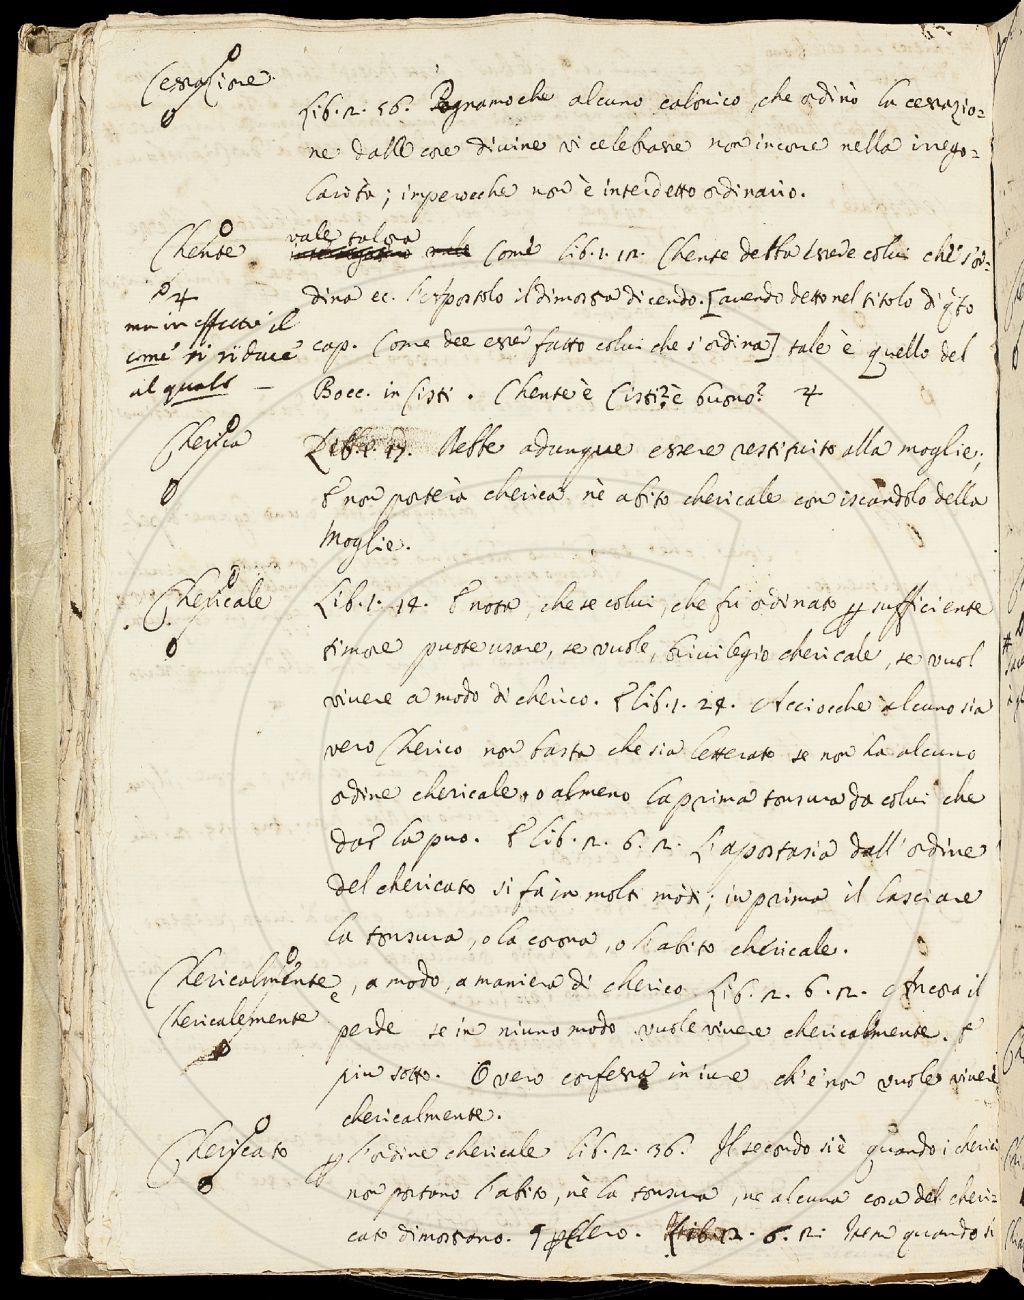 Cessazione
Lib. 2. 56. Pognamo che alcuno calonico, che ordinò la cessazio=
ne dalle cose divine vi celebrasse non incorre nella irrego=
larità; imperocche non è interdetto ordinario.
Chente
vale talora
Come lib. 1. 12. Chente debba essere colui che s'or=
dina ec. l'Apostolo il dimostra dicendo. [avendo detto nel titolo di qsto
cap. Come dee esser fatto colui che s'ordina] tale è quello del
Bocc. in Cisti. Chente è Cisti? è buono?
ma in effetto il
come si riduce
al quale —
Cherica
Lib. 1. 17. Debbe adunque essere restituito alla moglie,
e non porterà cherica nè abito chericale con iscandolo della
moglie.
Chericale
Lib. 1. 14. E nota, che se colui, che fu ordinato p sufficiente
timore puote usare, se vuole, privilegio chericale, se vuol
vivere a modo di cherico. E lib. 1. 24. Acciocche alcuno sia
vero cherico non basta che sia letterato se non ha alcuno
ordine chericale, o almeno la prima tonsura da colui che
dar la puo. E lib. 2. 6. 2. L'apostasia dall'ordine
del chericato si fà in molti modi; in prima il lasciare
la tonsura, o la corona, o l'abito chericale.
Chericalmente e
Chericalemente
, a modo, a maniera di cherico. Lib. 2. 6. 2. Ancora il
perde se in niuno modo vuole vivere chericalmente. E
piu sotto. O vero confessa in iure ch'e' non vuole vivere
chericalmente.
Chericato
p l'ordine chericale lib. 2. 36. Il secondo si è quando i cherici
non portano l'abito, nè la tonsura, ne alcuna cosa del cheri=
cato dimostrano. Lib. 2. 6. 2. Item quando si